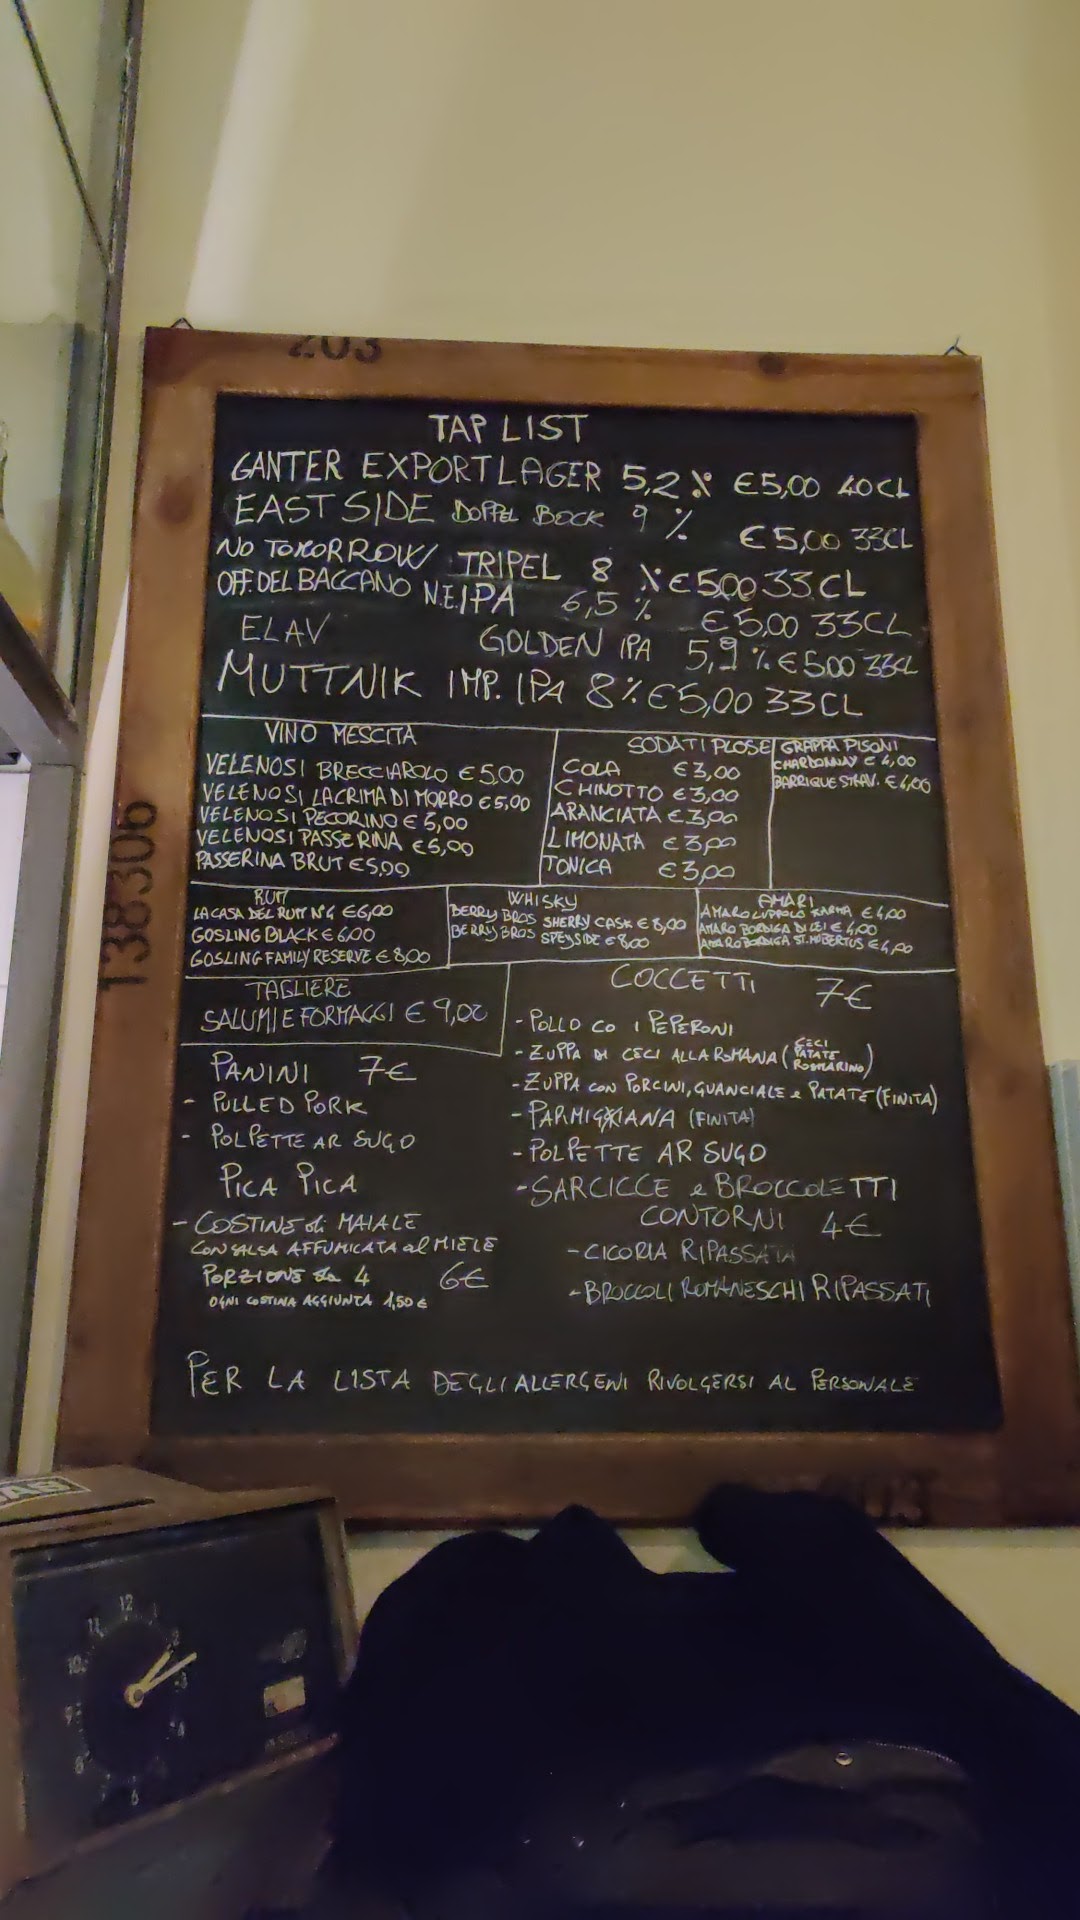 203
TAP LIST
GANTER EXPORT LAGER 5,2% €5,00 40CL
EAST SIDE DOPPEL BOCK 9% €5,00 33CL
NO TOMORROW TRIPEL 8% €5,00 33CL
OFF. DEL BACCANO N.E.IPA 6,5% €5,00 33CL
ELAV GOLDEN IPA 5,9% €5,00 33CL
MUTTNIK IMP. IPA 8% €5,00 33CL
VINO MESCITA
VELENOSI BRECCIAROLO €5,00
VELENOSI LACRIMA DI MORRO €5,00
VELENOSI PECORINO €5,00
VELENOSI PASSERINA €5,00
PASSERINA BRUT €5,00
SODATI PLOSE
COLA €3,00
CHINOTTO €3,00
ARANCIATA €3,00
LIMONATA €3,00
TONICA €3,00
GRAPPA PISONI
CHARDONNAY €4,00
BARRIQUE STRAV. €4,00
138306
RUM
LA CASA DEL RUM N°4 €6,00
GOSLING BLACK €6,00
GOSLING FAMILY RESERVE €8,00
WHISKY
BERRY BROS SHERRY CASK €8,00
BERRY BROS SPEYSIDE €8,00
AMARI
AMARO LUPPOLO KARMA €4,00
AMARO BORDIGA DI LEI €4,00
AMARO BORDIGA ST. HUBERTUS €4,00
TAGLIERE
SALUMI E FORMAGGI €9,00
PANINI 7€
- PULLED PORK
- POLPETTE AR SUGO
PICA PICA
- COSTINE di MAIALE
CON SALSA AFFUMICATA al MIELE
PORZIONE da 4 6€
OGNI COSTINA AGGIUNTA 1,50€
COCCETTI 7€
- POLLO CO I PEPERONI
- ZUPPA DI CECI ALLA ROMANA (CECI
PATATE
ROSMARINO)
- ZUPPA CON PORCINI, GUANCIALE e PATATE (FINITA)
- PARMIGIANA (FINITA)
- POLPETTE AR SUGO
- SARCICCE e BROCCOLETTI
CONTORNI 4€
- CICORIA RIPASSATA
- BROCCOLI ROMANESCHI RIPASSATI
PER LA LISTA DEGLI ALLERGENI RIVOLGERSI AL PERSONALE
12
1
2
3
4
6
7
8
9
10
11